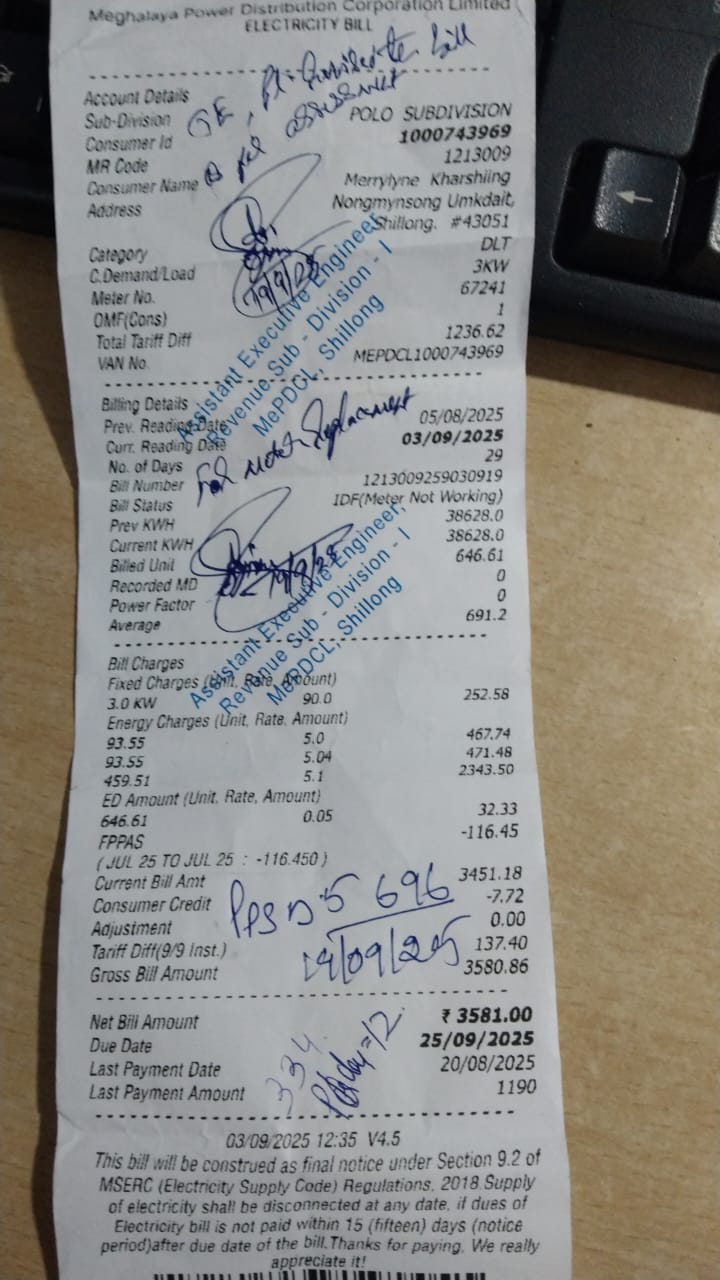 Meghalaya Power Distribution Corporation Limited
ELECTRICITY BILL
bill
Account Details
Sub-Division POLO SUBDIVISION
Consumer Id 1000743969
MR Code 1213009
Consumer Name Merrylyne Kharshiing
Address Nongmynsong Umkdait,
Shillong. #43051
Category DLT
C.Demand/Load 3KW
Meter No. 67241
OMF(Cons) 1
Total Tariff Diff 1236.62
VAN No. MEPDCL1000743969
19/9/25
Assistant Executive Engineer
Revenue Sub - Division - I
MePDCL, Shillong
Billing Details
Prev. Reading Date 05/08/2025
Curr. Reading Date 03/09/2025
No. of Days 29
Bill Number 1213009259030919
Bill Status IDF(Meter Not Working)
Prev KWH 38628.0
Current KWH 38628.0
Billed Unit 646.61
Recorded MD 0
Power Factor 0
Average 691.2
For Meter Replacement
19/9/25
Assistant Executive Engineer,
Revenue Sub - Division - I
MePDCL, Shillong
Bill Charges
Fixed Charges (Unit, Rate, Amount)
3.0 KW 90.0 252.58
Energy Charges (Unit, Rate, Amount)
93.55 5.0 467.74
93.55 5.04 471.48
459.51 5.1 2343.50
ED Amount (Unit, Rate, Amount)
646.61 0.05 32.33
FPPAS -116.45
( JUL 25 TO JUL 25 : -116.450 )
Current Bill Amt 3451.18
Consumer Credit -7.72
Adjustment 0.00
Tariff Diff(9/9 Inst.) 137.40
Gross Bill Amount 3580.86
5696
19/09/25
Net Bill Amount ₹ 3581.00
Due Date 25/09/2025
Last Payment Date 20/08/2025
Last Payment Amount 1190
334
03/09/2025 12:35 V4.5
This bill will be construed as final notice under Section 9.2 of
MSERC (Electricity Supply Code) Regulations, 2018.Supply
of electricity shall be disconnected at any date, if dues of
Electricity bill is not paid within 15 (fifteen) days (notice
period)after due date of the bill.Thanks for paying. We really
appreciate it!